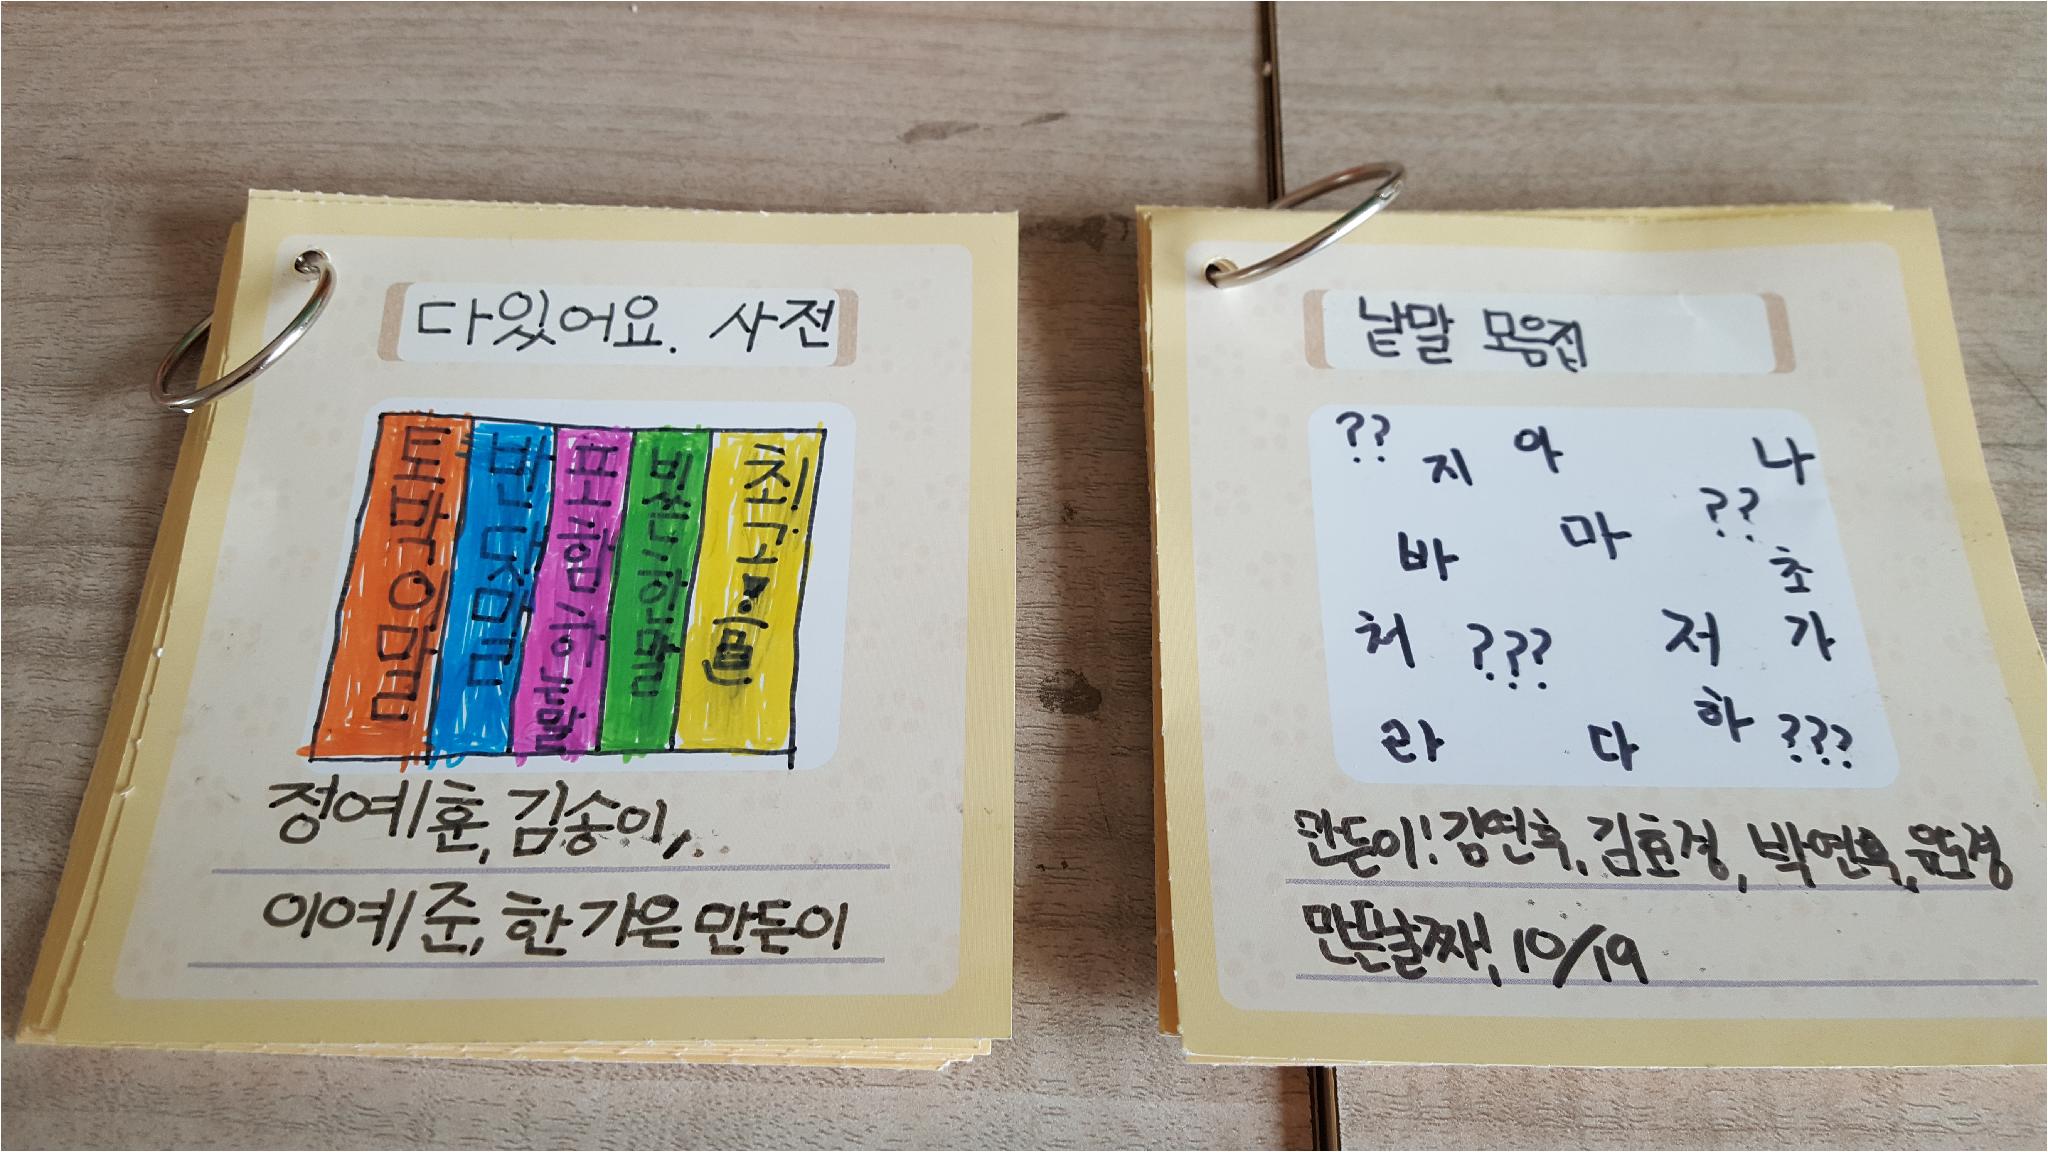 다있어요. 사전
토박이말
반대말
포함하는말
비슷한말
최고!
정예훈, 김송이,
이예준, 한가은 만든이
낱말 모음집
?? 지 아 나
바 마 ??
초
처 ??? 저 가
라 다 하 ???
만든이! 김연후, 김효정, 박연욱, 윤도경
만든날짜! 10/19